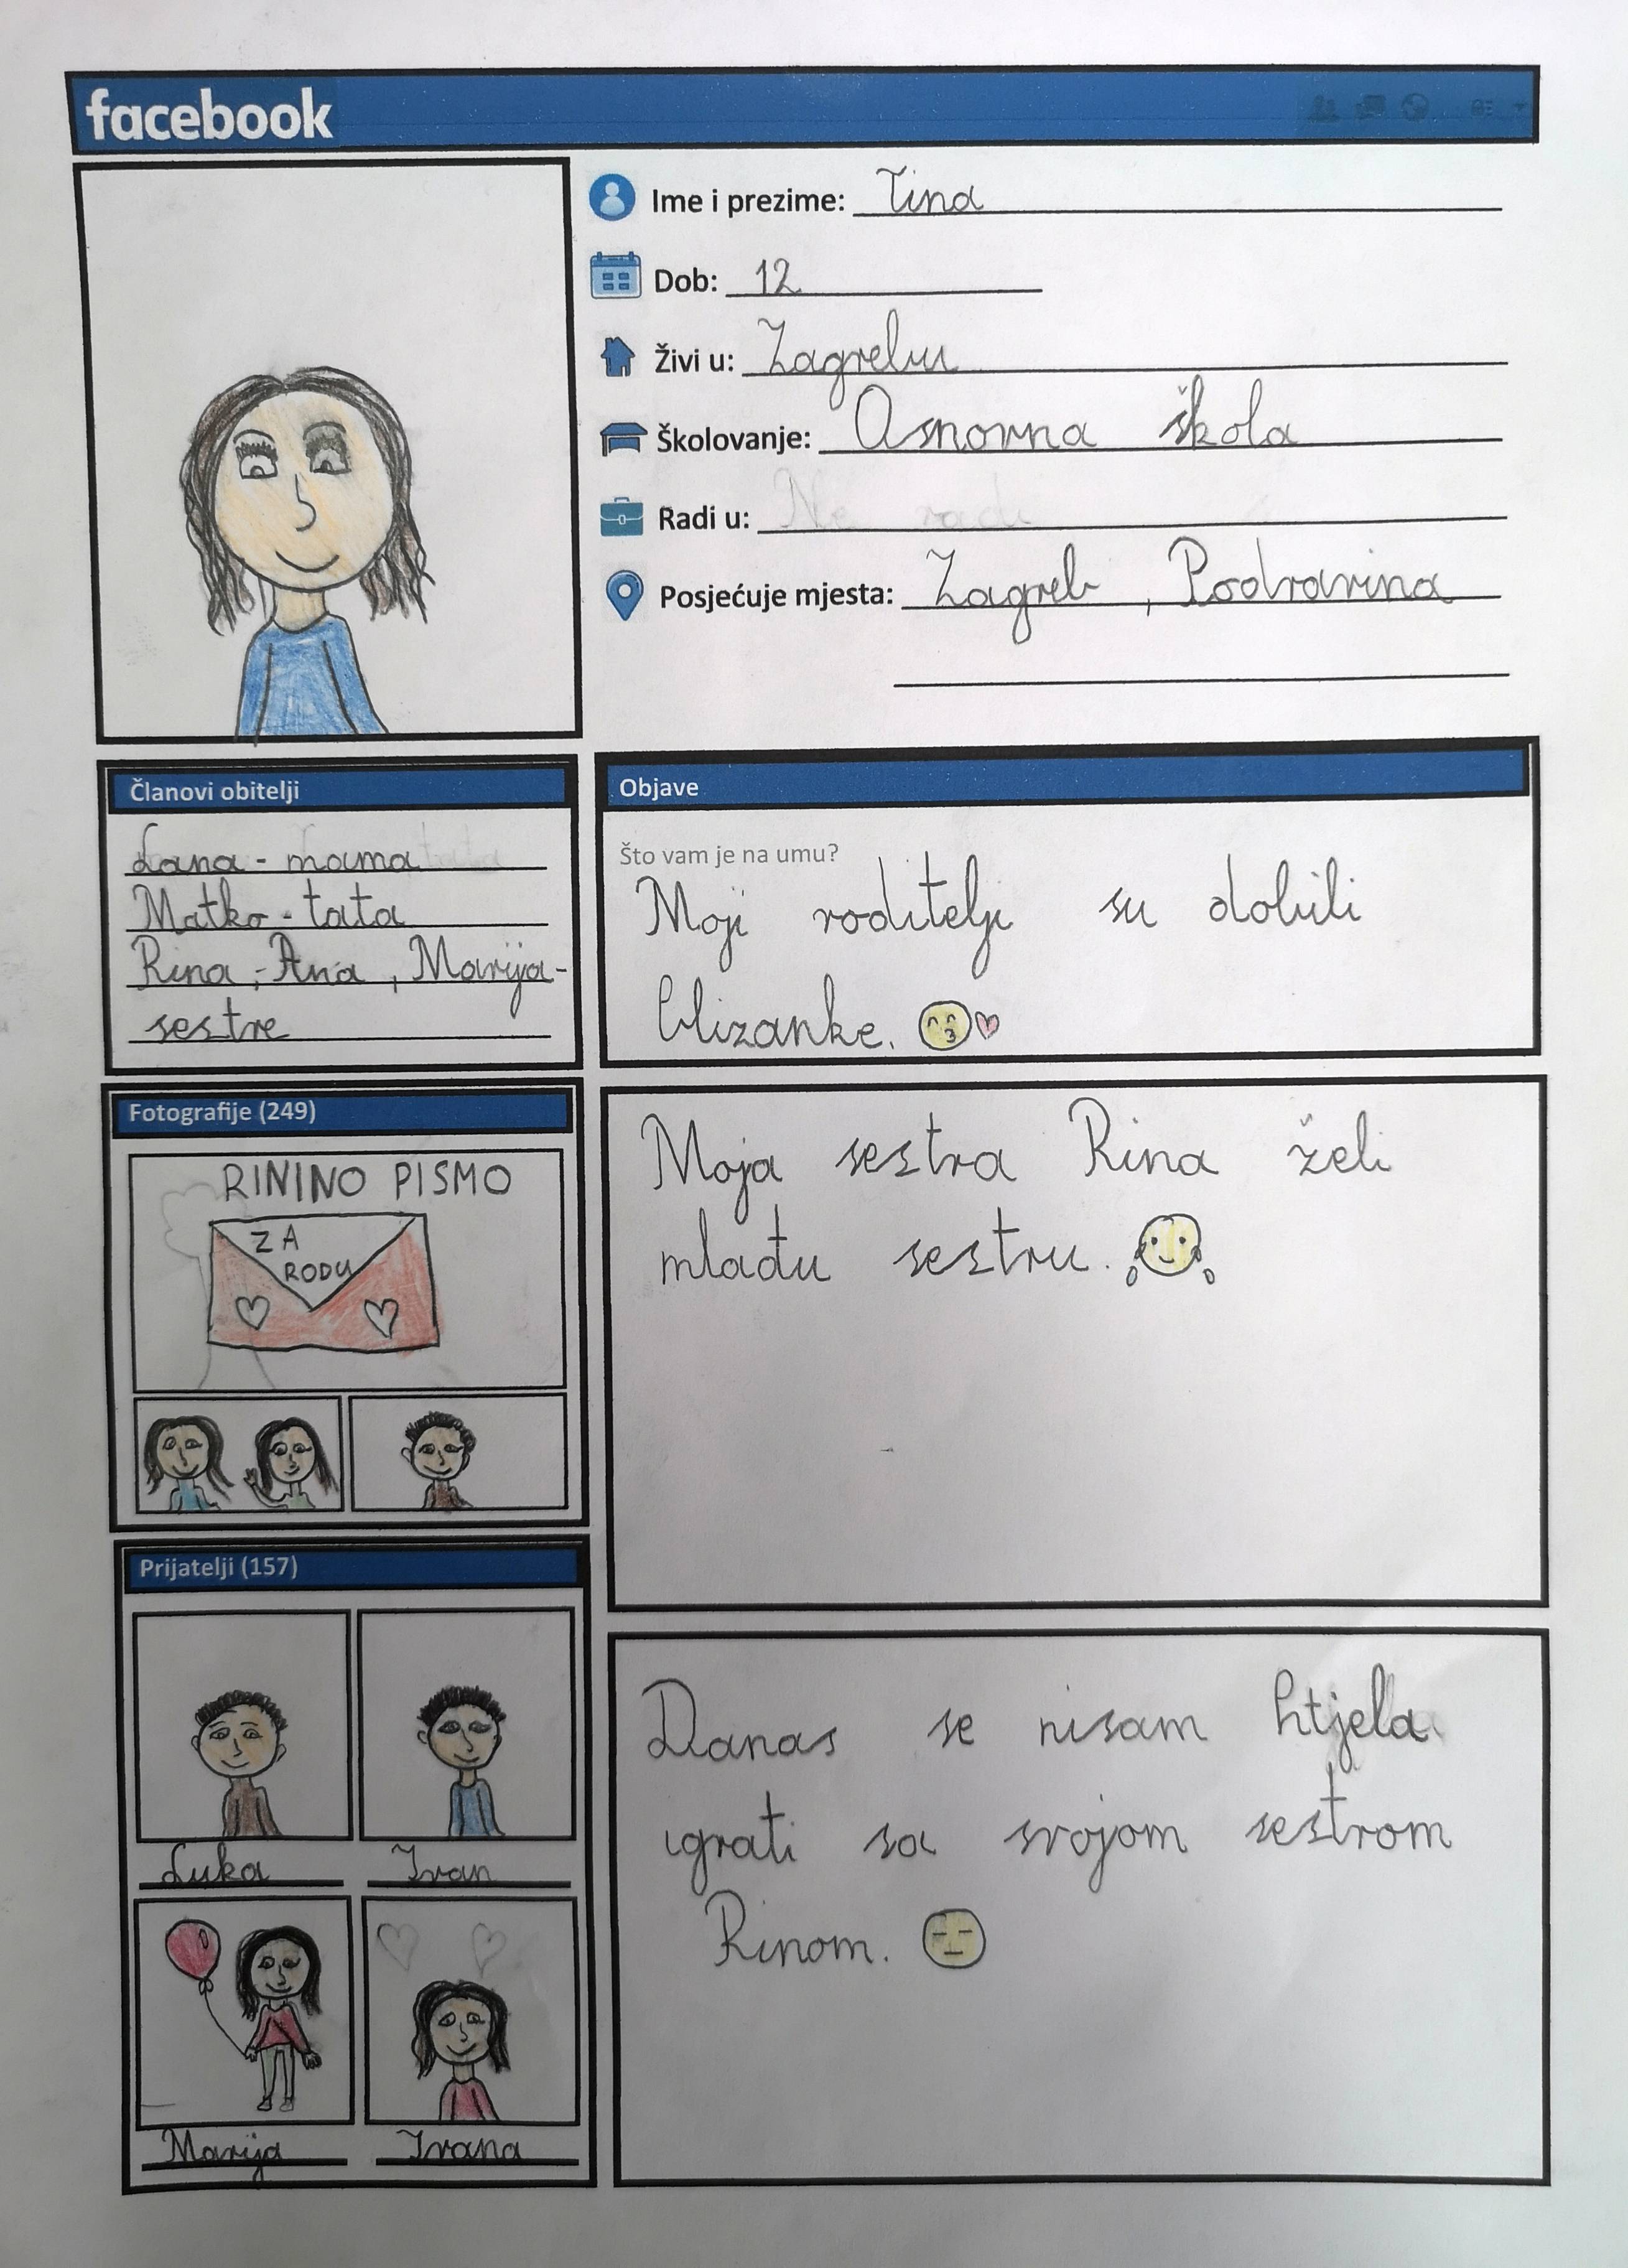 facebook
Ime i prezime: Tina
Dob: 12
Živi u: Zagrebu
Školovanje: Osnovna škola
Radi u: Ne radi
Posjećuje mjesta: Zagreb, Podravina
Članovi obitelji
Lana - mama
Matko - tata
Rina, Ana, Marija -
sestre
Objave
Što vam je na umu?
Moji roditelji su dobili
blizanke.
Fotografije (249)
RININO PISMO
ZA
RODU
Moja sestra Rina želi
mlađu sestru.
Prijatelji (157)
Luka
Ivan
Marija
Ivana
Danas se nisam htjela
igrati sa svojom sestrom
Rinom.